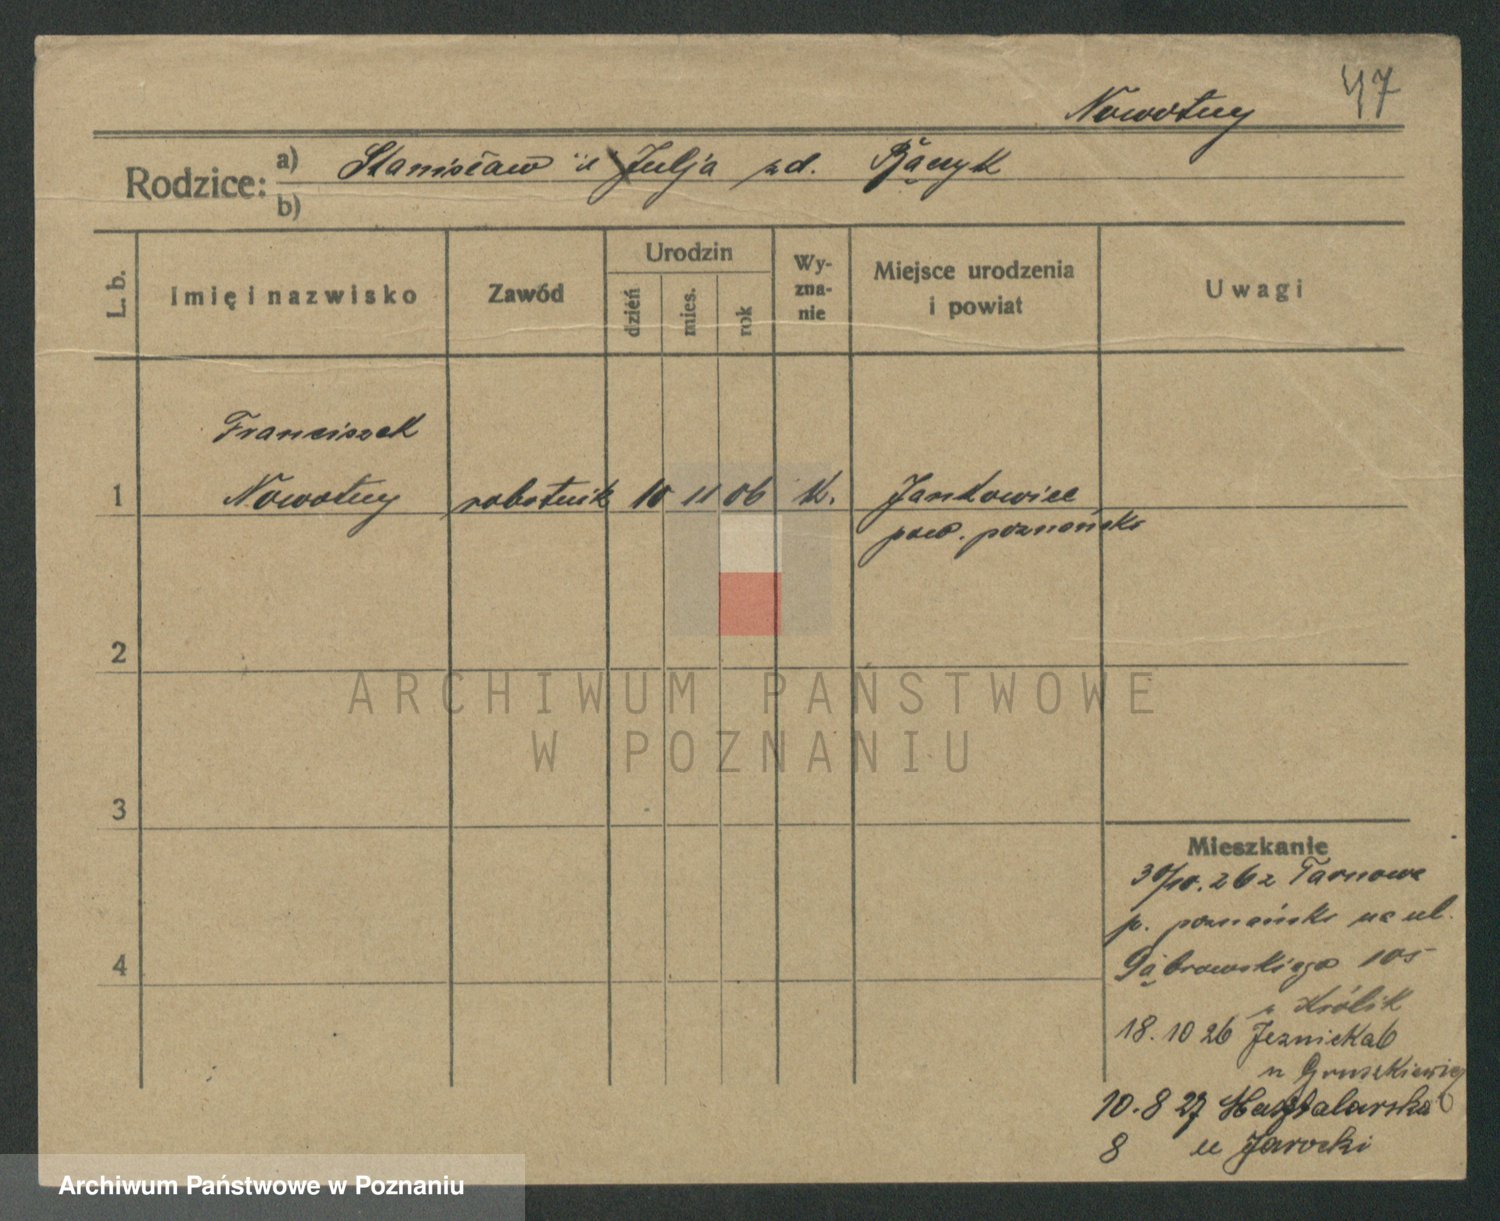 47
Nowotny
Rodzice:
a) Stanisław i Julja zd. Bączyk
b)
L. b.
Imię i nazwisko
Zawód
Urodzin
dzień
mies.
rok
Wy-
zna-
nie
Miejsce urodzenia
i powiat
Uwagi
Franciszek
1 Nowotny robotnik 10 11 06 K. Jankowice
pow. poznański
2
ARCHIWUM PAŃSTWOWE
W POZNANIU
3
4
Mieszkanie
30/10. 26 z Tarnowa
p. poznański na ul.
Dąbrowskiego 105
u Królik
18. 10 26 Jeżnicka 6
u Gruszkiewicz
10. 8 27 Masztalarska
8 u Jarocki
Archiwum Państwowe w Poznaniu